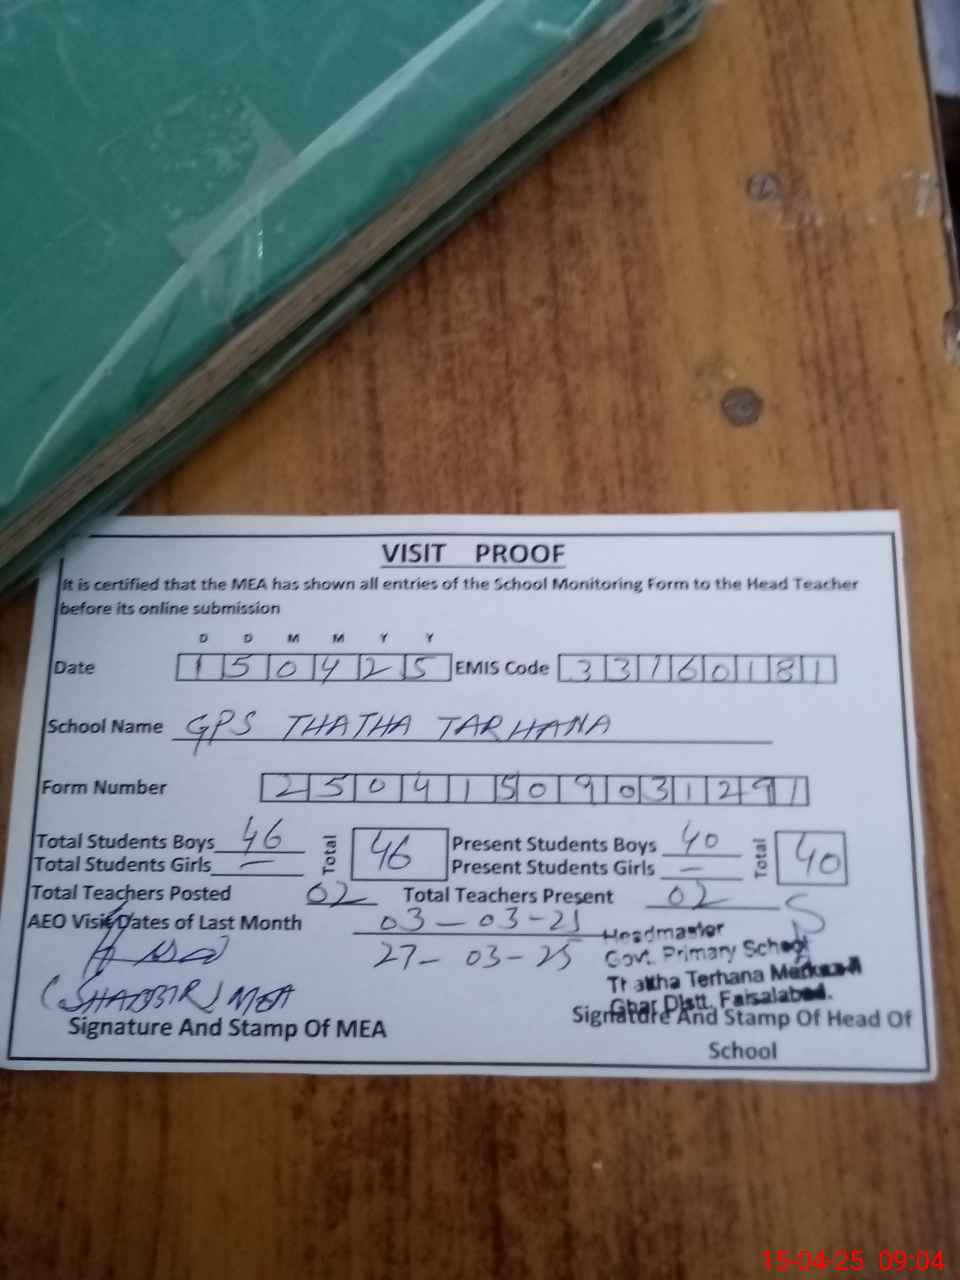 VISIT PROOF
It is certified that the MEA has shown all entries of the School Monitoring Form to the Head Teacher
before its online submission
D D M M Y Y
Date 1 5 0 4 2 5 EMIS Code 3 3 1 6 0 1 8 1
School Name GPS THATHA TARHANA
Form Number 2 5 0 4 1 5 0 9 0 3 1 2 9 1
Total Students Boys 46 Total 46 Present Students Boys 40 Total 40
Total Students Girls — Present Students Girls —
Total Teachers Posted 02 Total Teachers Present 02
AEO Visit Dates of Last Month 03-03-25
27-03-25
Headmaster
Govt. Primary School
Thatha Terhana
Ghar Distt. Faisalabad.
(SHABBIR) MEA
Signature And Stamp Of MEA
Signature And Stamp Of Head Of
School
15-04-25 09:04